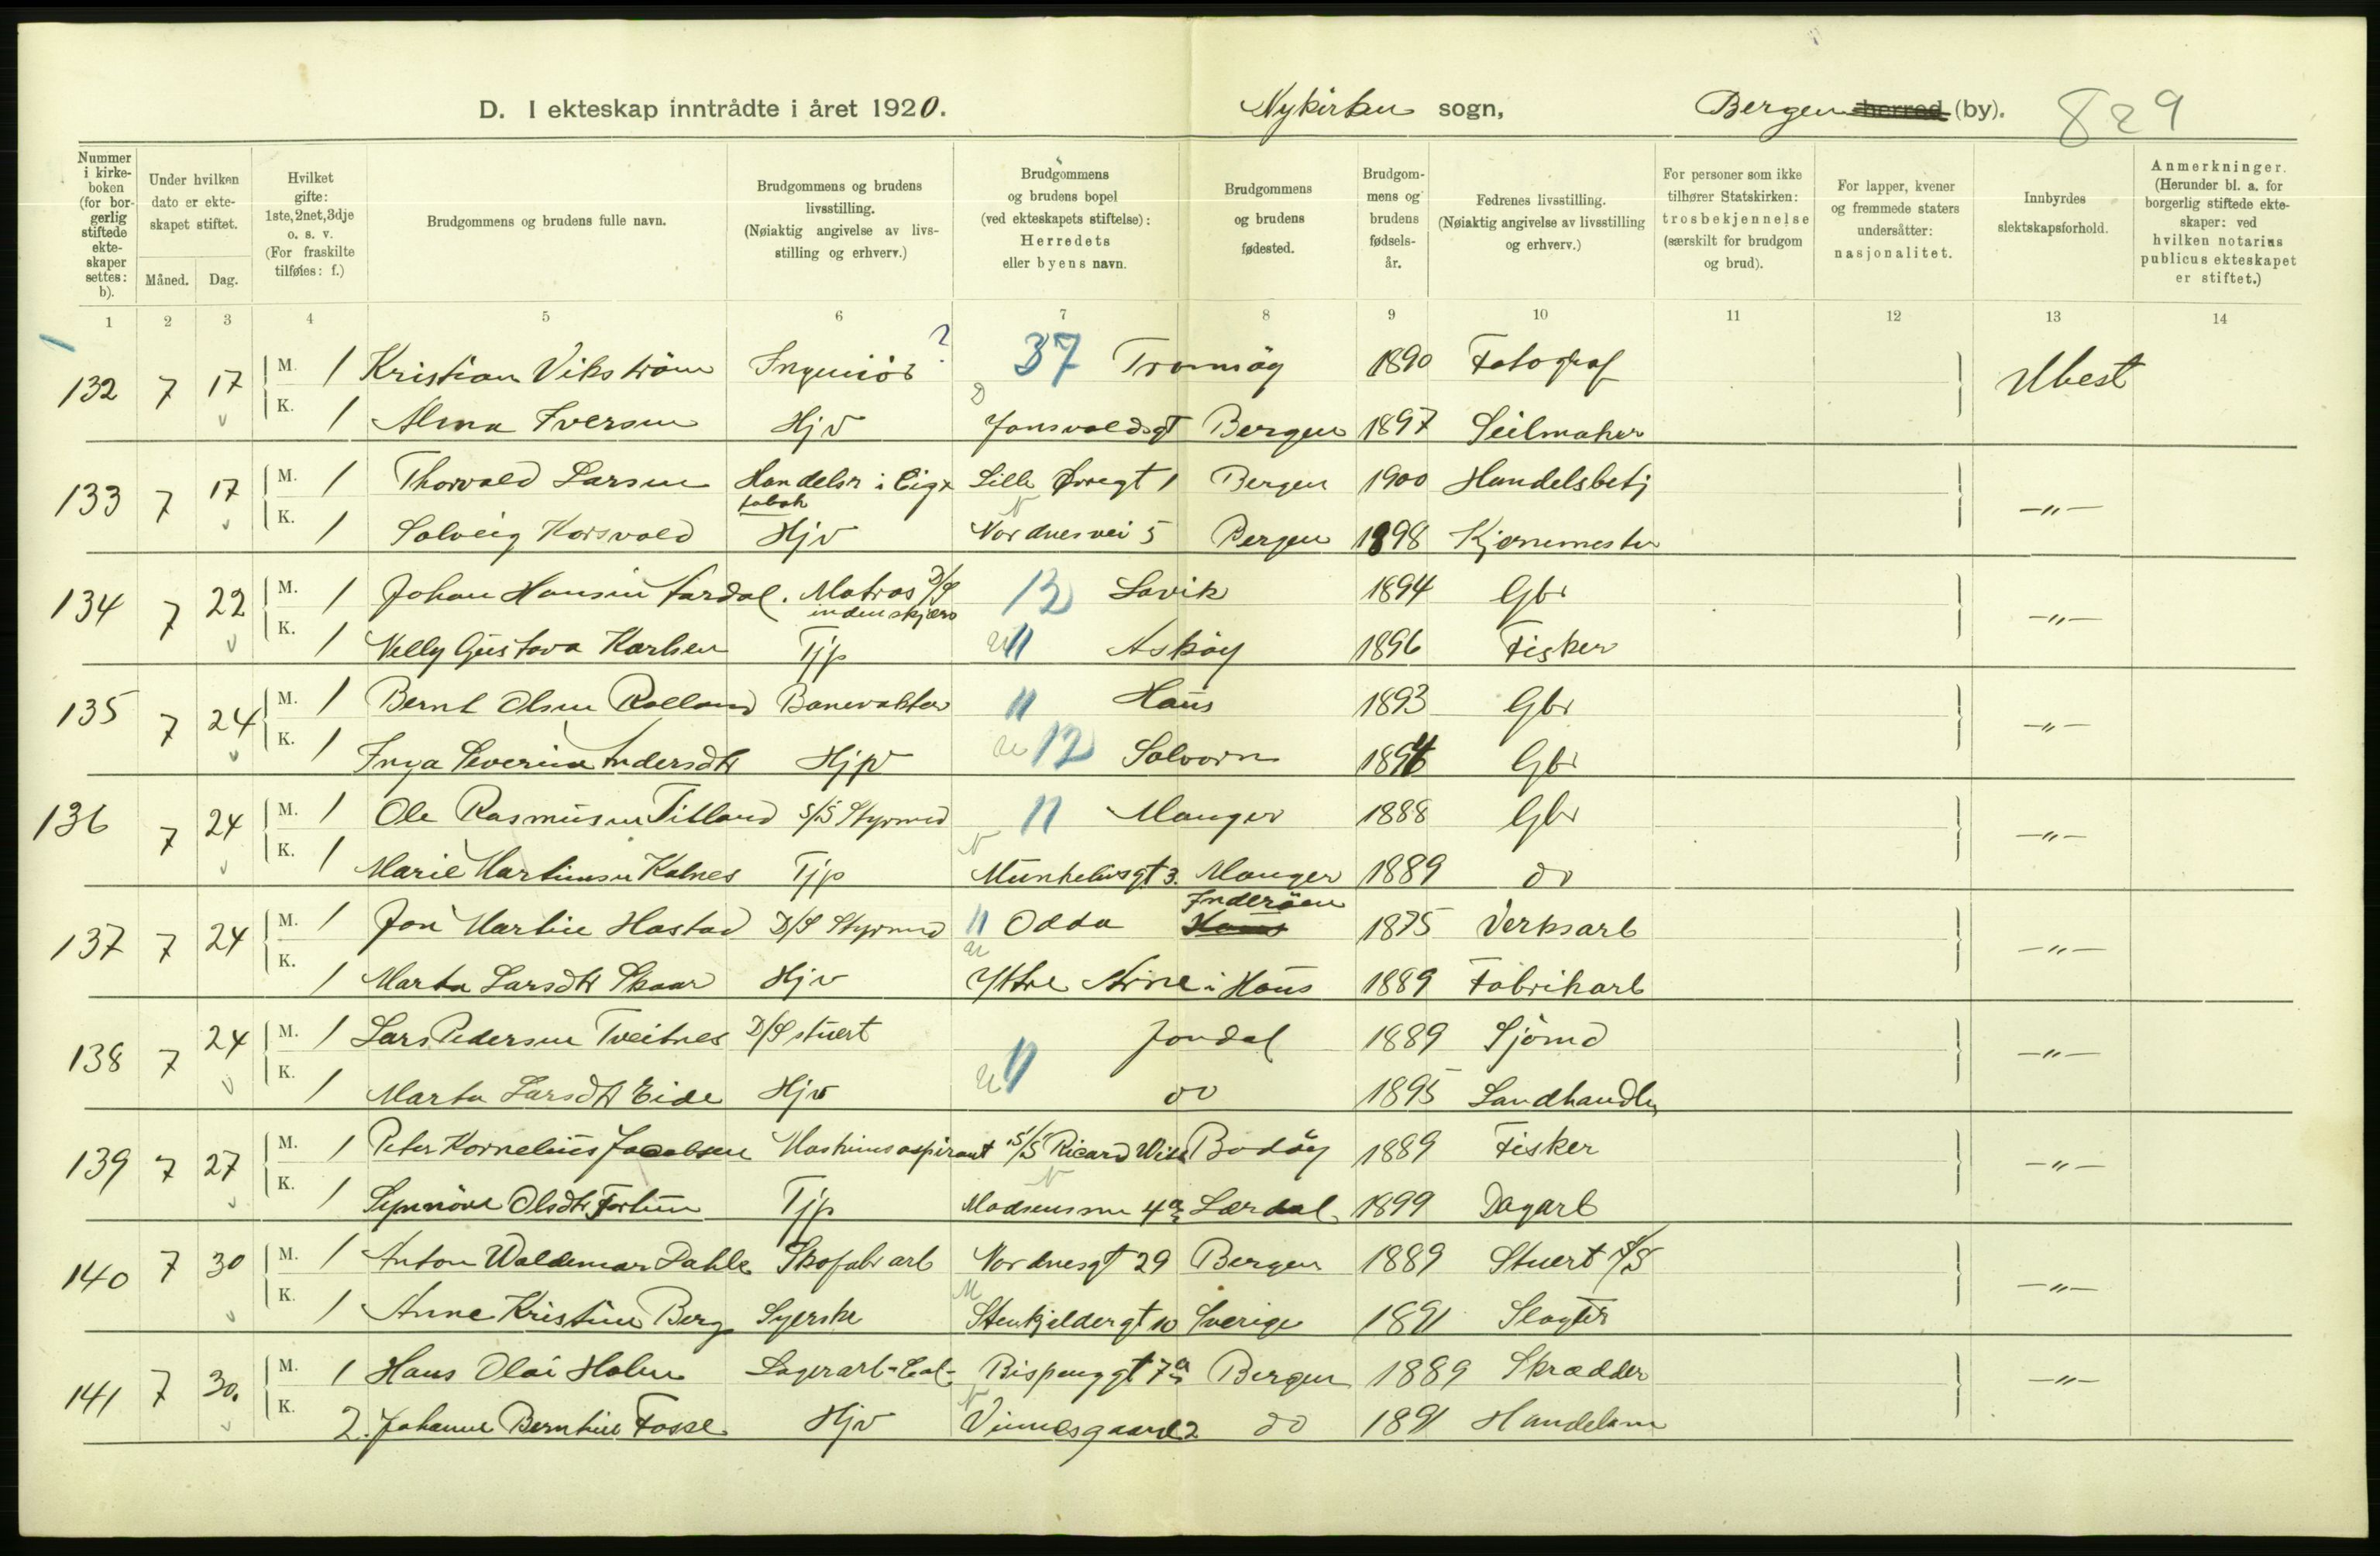 D. I ekteskap inntrådte i året 1920. Nykirken sogn, Bergen herred (by). 829
Nummer i kirke- boken (for bor- gerlig stiftede ekte- skaper settes: b).
Under hvilken dato er ekte- skapet stiftet.
Måned. Dag.
Hvilket gifte: 1ste, 2net, 3dje o. s. v. (For fraskilte tilføies: f.)
Brudgommens og brudens fulle navn.
Brudgommens og brudens livsstilling. (Nøiaktig angivelse av livs- stilling og erhverv.)
Brudgommens og brudens bopel (ved ekteskapets stiftelse): Herredets eller byens navn.
Brudgommens og brudens fødested.
Brudgom- mens og brudens fødsels- år.
Fedrenes livsstilling. (Nøiaktig angivelse av livsstilling og erhverv.)
For personer som ikke tilhører Statskirken: trosbekjennelse (særskilt for brudgom og brud).
For lapper, kvener og fremmede staters undersåtter: nasjonalitet.
Innbyrdes slektskapsforhold.
Anmerkninger. (Herunder bl. a. for borgerlig stiftede ekte- skaper: ved hvilken notarius publicus ekteskapet er stiftet.)
1 2 3 4 5 6 7 8 9 10 11 12 13 14
132 7 17 M. 1 Kristian Vikström Ingeniör ? 37 Tromsöy 1890 Fotograf Ubest
K. 1 Alma Iversen Hjv Jonsvoldsgt Bergen 1897 Seilmaker
133 7 17 M. 1 Thorvald Larsen Handelsr i Cig &
tobak Lille Øvregt 1 Bergen 1900 Handelsbetj -"-
K. 1 Solveig Korsvold Hjv Nordnesvei 5 Bergen 1898 Kjørnemester
134 7 22 M. 1 Johan Hansen Aardal. Matros D/S
indenskjærs 12 Lavik 1894 Gbr -"-
K. 1 Nelly Gustava Karlsen Tjp 11 Asköy 1896 Fisker
135 7 24 M. 1 Bernt Olsen Rolland Banevakter 11 Haus 1893 Gbr -"-
K. 1 Inga Severine Andersdtr Hjv 12 Solvorn 1894 Gbr
136 7 24 M. 1 Ole Rasmusen Titland S/S Styrmd 11 Manger 1888 Gbr -"-
K. 1 Marie Martinsen Kalnes Tjp Munkelivsgt 3. Manger 1889 do
137 7 24 M. 1 Jon Martin Hastad D/S Styrmd 11 Odda Inderöen Haus 1875 Verksarb -"-
K. 1 Marta Larsdtr Skaar Hjv Ytre Arne i Haus 1889 Fabrikarb
138 7 24 M. 1 Lars Pedersen Tveitnes D/S stuert Jondal 1889 Sjömd -"-
K. 1 Marta Larsdtr Eide Hjv 11 do 1895 Landhandler
139 7 27 M. 1 Peter Kornelius Jacobsen Maskinsaspirant S/S Ricard With Bodöy 1889 Fisker -"-
K. 1 Synnöve Olsdtr Fortun Tjp Madsensm 4a Lærdal 1899 Dagarb
140 7 30 M. 1 Anton Waldemar Dahle Skofabr arb Nordnesgt 29 Bergen 1889 Stuert S/S -"-
K. 1 Anne Kristine Berg Syerske Stenkjeldergt 10 Sverige 1891 Slagter
141 7 30. M. 1 Hans Olai Holm Lagerarb Bispenggt 7a Bergen 1889 Skrædder -"-
K. 2. Johanne Berntine Fosse Hjv Vinnesgaard 2 do 1891 Handelsm